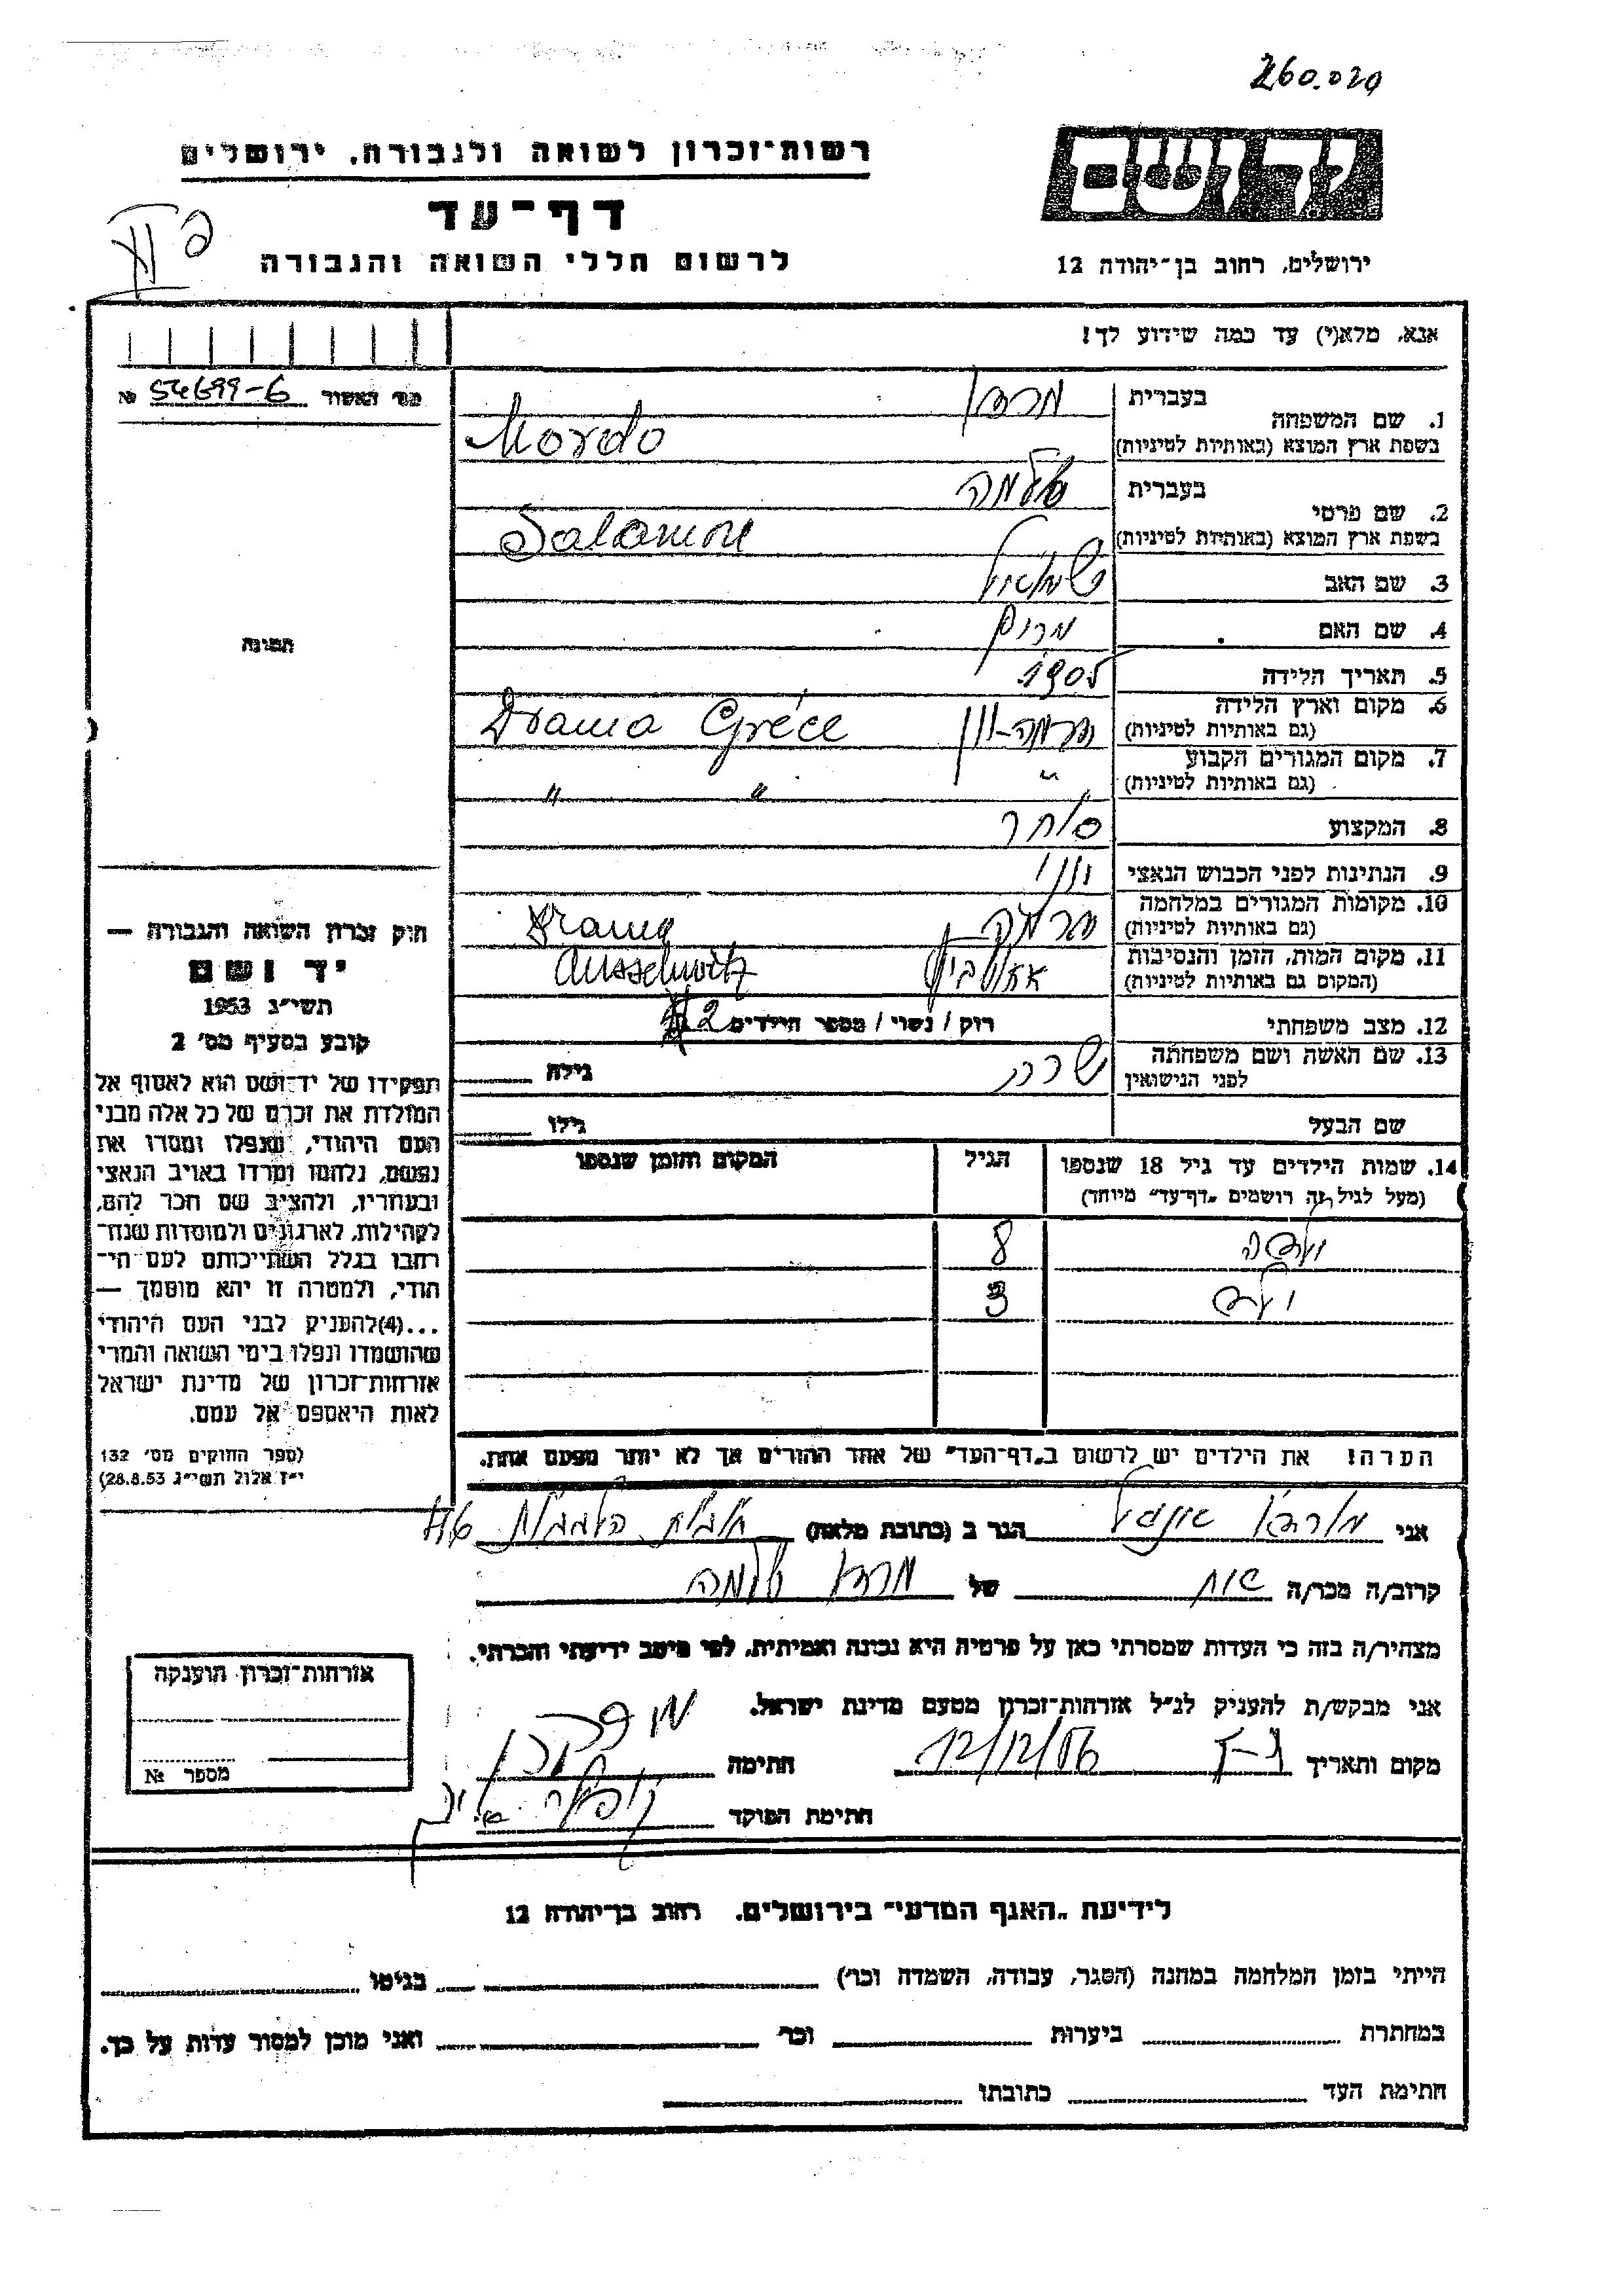 260.020
יד ושם
רשות־זכרון לשואה ולגבורה, ירושלים
דף־עד
לרשום חללי השואה והגבורה
ירושלים, רחוב בן־יהודה 12
אנא, מלא(י) עד כמה שידוע לך!
מס׳ האשור 54699-6 №
1. שם המשפחה
בעברית מרדו
בשפת ארץ המוצא (באותיות לטיניות) Mordo
2. שם פרטי
בעברית שלמה
בשפת ארץ המוצא (באותיות לטיניות) Salamon
3. שם האב שמואל
4. שם האם מרים
5. תאריך הלידה 1905
6. מקום וארץ הלידה
(גם באותיות לטיניות) דרמה-יוון Drama Gréce
7. מקום המגורים הקבוע
(גם באותיות לטיניות) " " "
8. המקצוע סוחר
9. הנתינות לפני הכבוש הנאצי יווני
10. מקומות המגורים במלחמה
(גם באותיות לטיניות) דרמה Drama
11. מקום המות, הזמן והנסיבות
(המקום גם באותיות לטיניות) Ausschwitz
12. מצב משפחתי רוק / נשוי / מספר הילדים 2
13. שם האשה ושם משפחתה
לפני הנישואין שרה גילה
שם הבעל גילו
14. שמות הילדים עד גיל 18 שנספו
(מעל לגיל זה רושמים „דף־עד״ מיוחד)
הגיל
המקום והזמן שנספו
8
3
הערה! את הילדים יש לרשום ב„דף־העד״ של אחד ההורים אך לא יותר מפעם אחת.
תמונה
חוק זכרון השואה והגבורה —
יד ושם
תשי״ג 1953
קובע בסעיף מס׳ 2
תפקידו של יד־ושם הוא לאסוף אל
המולדת את זכרם של כל אלה מבני
העם היהודי, שנפלו ומסרו את
נפשם, נלחמו ומרדו באויב הנאצי
ובעוזריו, ולהציב שם וזכר להם,
לקהילות, לארגונים ולמוסדות שנח־
רחבו בגלל השתייכותם לעם הי־
הודי, ולמטרה זו יהא מוסמך —
...(4)להעניק לבני העם היהודי
שהושמדו ונפלו בימי השואה והמרי
אזרחות־זכרון של מדינת ישראל
לאות היאספם אל עמם.
(ספר החוקים מס׳ 132
י״ז אלול תשי״ג 28.8.53)
אני מורדו הגר ב (כתובת מלאה)
קרוב/ה מכר/ה אח של מרדו שלמה
מצהיר/ה בזה כי העדות שמסרתי כאן על פרטיה היא נכונה ואמיתית, לפי מיטב ידיעתי והכרתי.
אני מבקש/ת להעניק לנ״ל אזרחות־זכרון מטעם מדינת ישראל.
מקום ותאריך 12/12/56 חתימה
חתימת הפוקד
אזרחות־זכרון הוענקה
מספר №
לידיעת „האגף המדעי״ בירושלים, רחוב בן־יהודה 12
הייתי בזמן המלחמה במחנה (הסגר, עבודה, השמדה וכר׳) בגיטו
במחתרת ביערות וכר׳ ואני מוכן למסור עדות על כך.
חתימת העד כתובתו